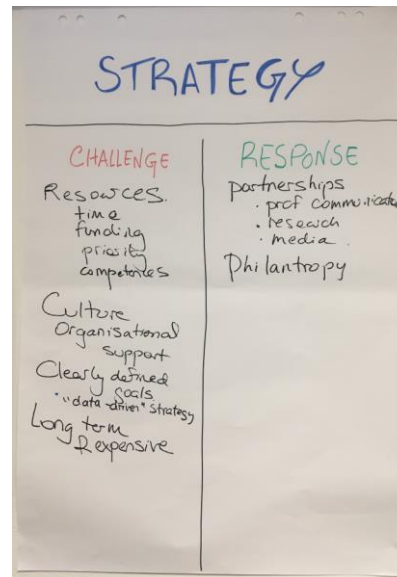 STRATEGY
CHALLENGE
Resources.
time
funding
priority
competences
Culture
Organisational
support
Clearly defined
goals
• "data-driven" strategy
Long term
& expensive
RESPONSE
partnerships
• prof communicators
• research
• media
Philantropy